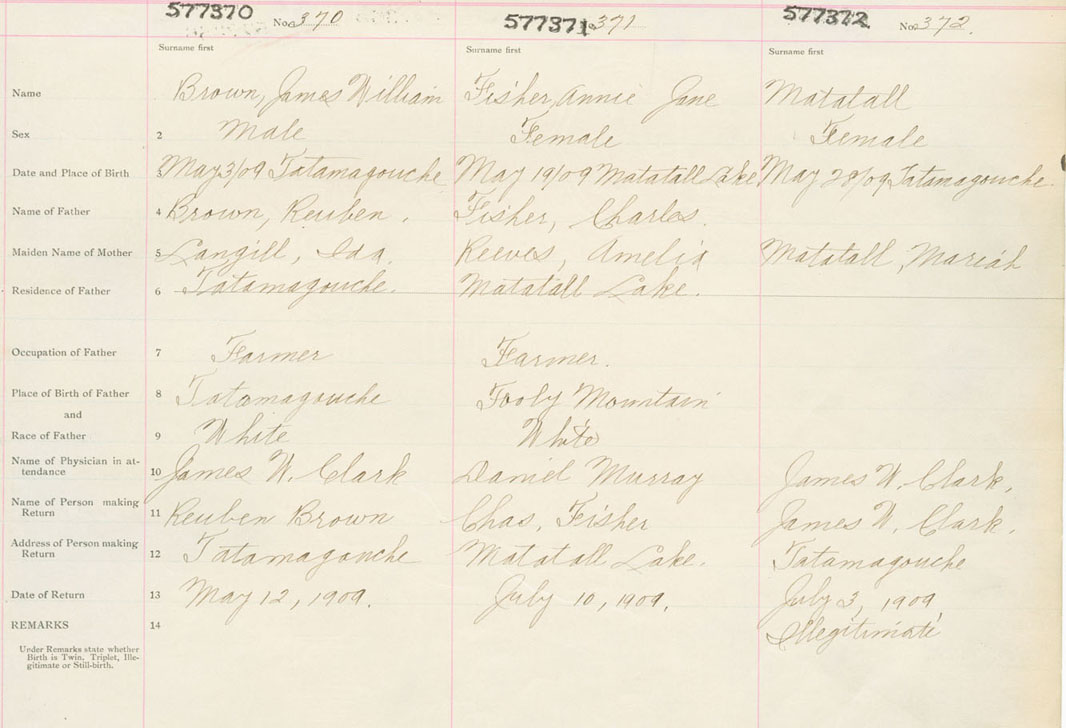 577370 No. 370 577371 371 577372 No. 372.
Surname first Surname first Surname first
Name Brown, James William Fisher, Annie Jane Matatall
Sex 2 Male Female Female
Date and Place of Birth 3 May 3/09 Tatamagouche May 19/09 Matatall Lake May 28/09 Tatamagouche.
Name of Father 4 Brown, Reuben. Fisher, Charles.
Maiden Name of Mother 5 Langill, Ida. Reeves, Amelia Matatall, Mariah
Residence of Father 6 Tatamagouche. Matatall Lake.
Occupation of Father 7 Farmer Farmer.
Place of Birth of Father 8 Tatamagouche Fooly Mountain
and
Race of Father 9 White White
Name of Physician in at-
tendance 10 James W. Clark Daniel Murray James W. Clark,
Name of Person making
Return 11 Reuben Brown Chas. Fisher James W. Clark.
Address of Person making
Return 12 Tatamagouche Matatall Lake. Tatamagouche
Date of Return 13 May 12, 1909. July 10, 1909. July 3, 1909
REMARKS 14 Illegitimate
Under Remarks state whether
Birth is Twin, Triplet, Ille-
gitimate or Still-birth.